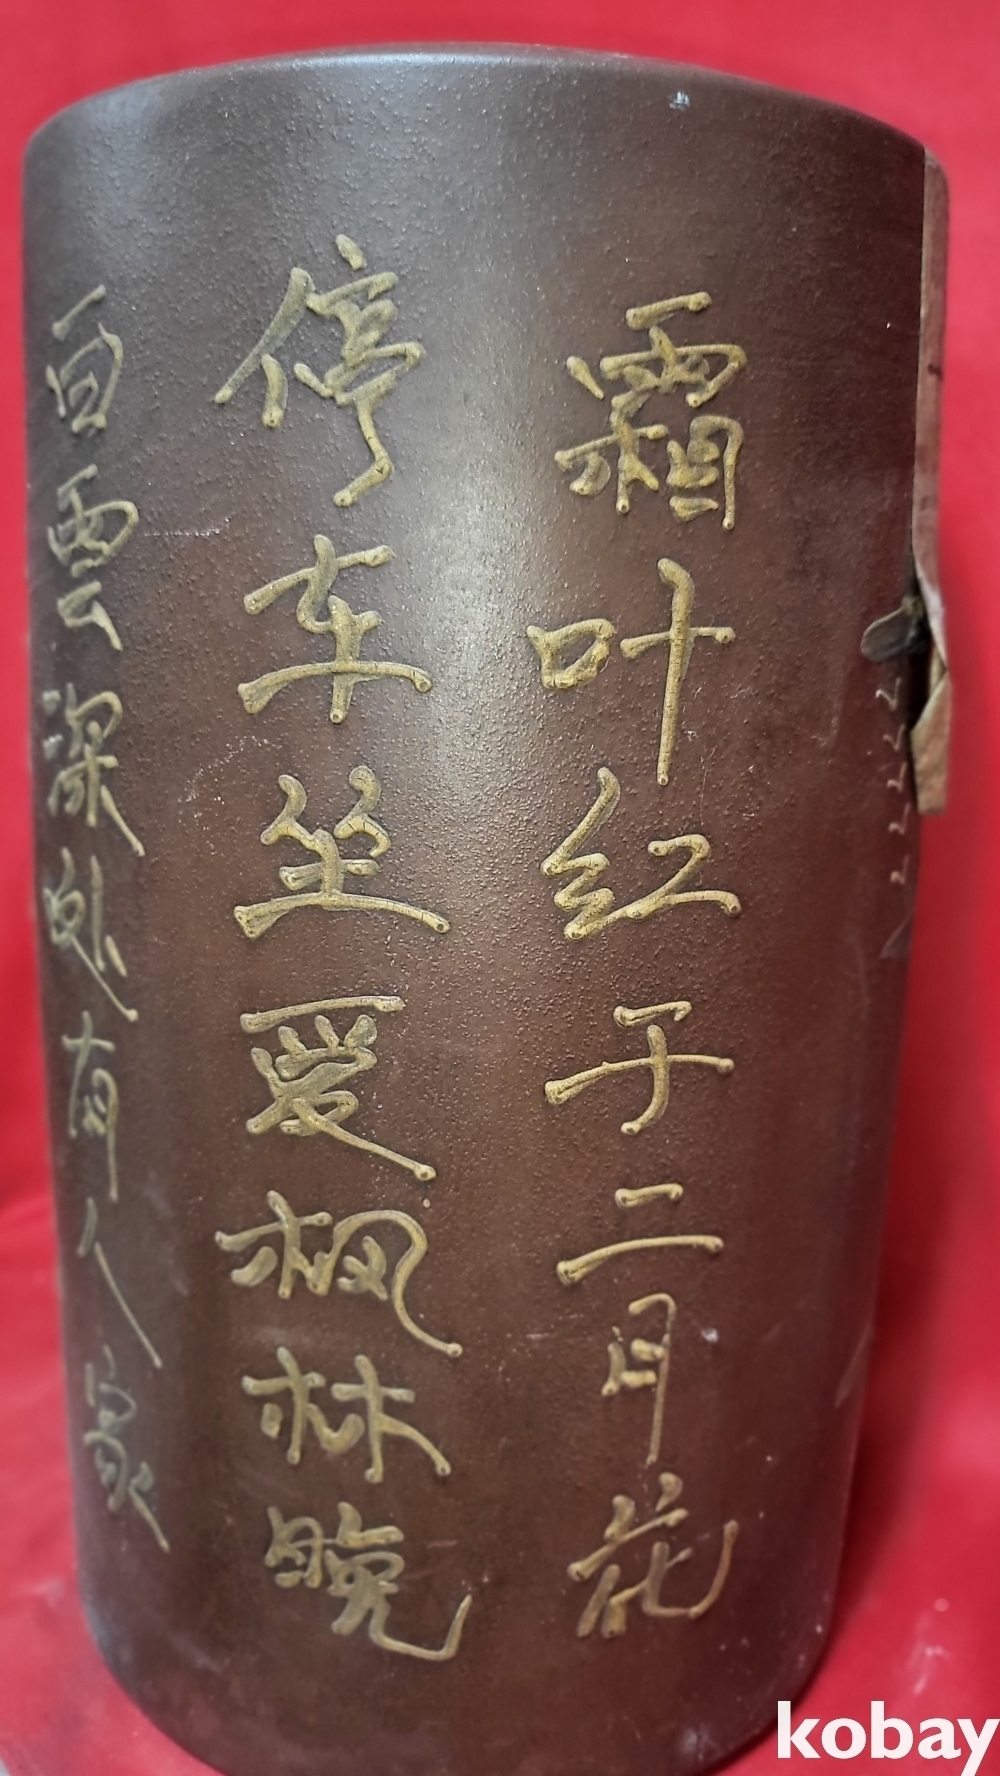 白雲深处有人家
停车坐爱枫林晚
霜叶红于二月花
kobay